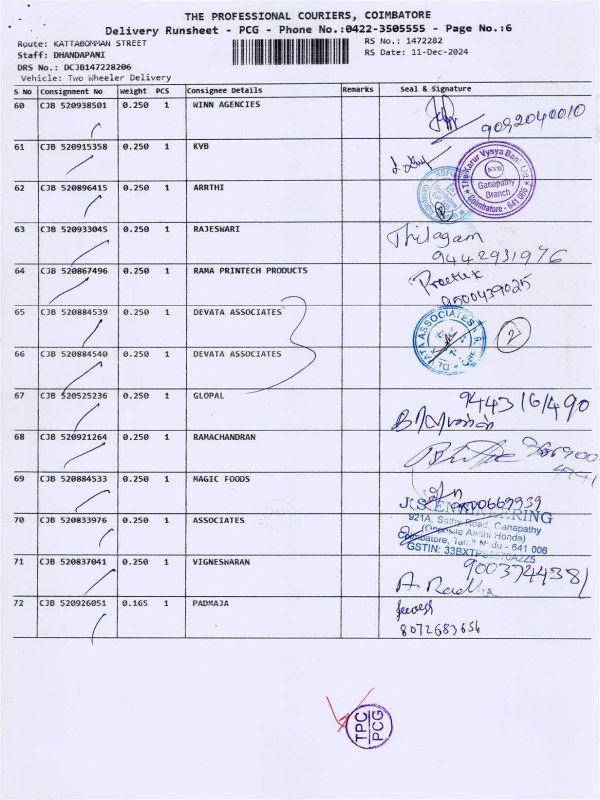 THE PROFESSIONAL COURIERS, COIMBATORE
Delivery Runsheet - PCG - Phone No.:0422-3505555 - Page No.:6
Route: KATTABOMMAN STREET RS No.: 1472282
Staff: DHANDAPANI RS Date: 11-Dec-2024
DRS No.: DCJB147228206
Vehicle: Two Wheeler Delivery
S No Consignment No Weight PCS Consignee Details Remarks Seal & Signature
60 CJB 520938501 0.250 1 WINN AGENCIES
9092040010
61 CJB 520915358 0.250 1 KVB
The Karur Vysya Bank Ltd
KVB
Ganapathy
Branch
Coimbatore - 641 006
62 CJB 520896415 0.250 1 ARRTHI
63 CJB 520933045 0.250 1 RAJESWARI
Thilagam
9442931976
64 CJB 520867496 0.250 1 RAMA PRINTECH PRODUCTS
9500439025
65 CJB 520884539 0.250 1 DEVATA ASSOCIATES
2
66 CJB 520884540 0.250 1 DEVATA ASSOCIATES
67 CJB 520525236 0.250 1 GLOPAL
9443161490
68 CJB 520921264 0.250 1 RAMACHANDRAN
69 CJB 520884533 0.250 1 MAGIC FOODS
J S ENGINEERING
921A, Sathy Road, Ganapathy
(Opposite Aarthi Honda)
Coimbatore, Tamil Nadu - 641 006
70 CJB 520833976 0.250 1 ASSOCIATES
71 CJB 520837041 0.250 1 VIGNESWARAN
9003744381
A. Radha
72 CJB 520926051 0.165 1 PADMAJA
8072683656
TPC
PCG